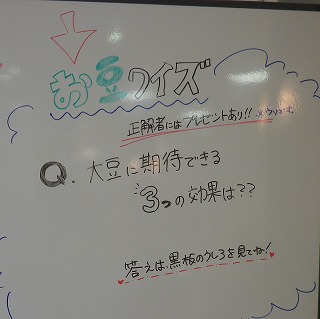 お豆クイズ
正解者にはプレゼントあり!! ※ウソです。
Q. 大豆に期待できる
3つの効果は??
答えは、黒板のうしろを見てね!